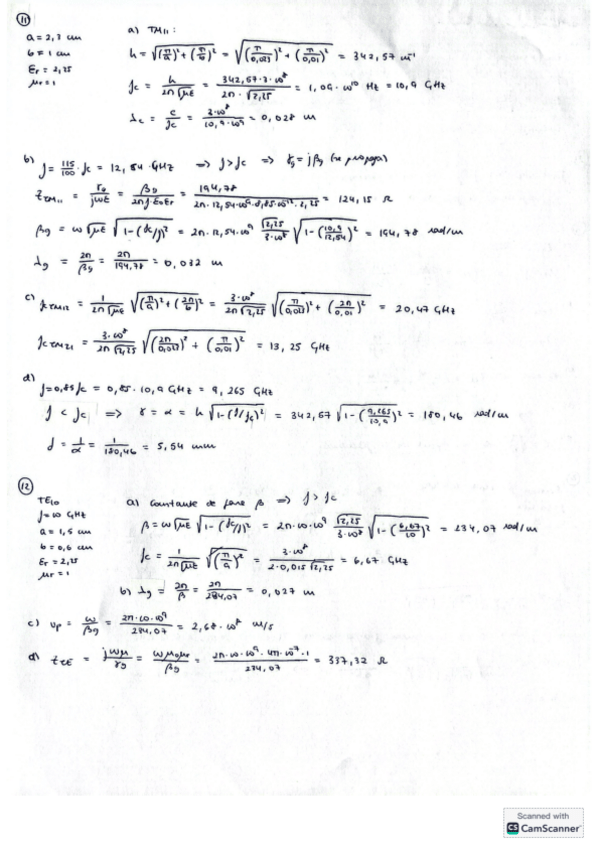 11
a = 2,3 cm
b = 1 cm
εr = 2,25
μr = 1
a) TM11 :
h = √((π/a)² + (π/b)²) = √((π/0,023)² + (π/0,01)²) = 342,57 m⁻¹
fc = h/(2π√με) = (342,57·3·10⁸)/(2π·√2,25) = 1,09·10¹⁰ Hz = 10,9 GHz
λc = c/fc = (3·10⁸)/(10,9·10⁹) = 0,028 m
b) f = 115/100 · fc = 12,54 GHz ⇒ f > fc ⇒ γg = jβg (se propaga)
ZTM11 = γg/(jωε) = βg/(2πf·ε0εr) = 194,78/(2π·12,54·10⁹·8,85·10⁻¹²·2,25) = 124,15 Ω
βg = ω√με √(1-(fc/f)²) = 2π·12,54·10⁹ √2,25/(3·10⁸) √(1-(10,9/12,54)²) = 194,78 rad/m
λg = 2π/βg = 2π/194,78 = 0,032 m
c) fcTM12 = 1/(2π√με) √((π/a)² + (2π/b)²) = (3·10⁸)/(2π√2,25) √((π/0,023)² + (2π/0,01)²) = 20,47 GHz
fcTM21 = (3·10⁸)/(2π√2,25) √((2π/0,023)² + (π/0,01)²) = 13,25 GHz
d)
f = 0,85fc = 0,85·10,9 GHz = 9,265 GHz
f < fc ⇒ γ = α = h √(1-(f/fc)²) = 342,57 √(1-(9,265/10,9)²) = 180,46 rad/m
d = 1/α = 1/180,46 = 5,54 mm
12
TE10
f = 10 GHz
a = 1,5 cm
b = 0,6 cm
εr = 2,25
μr = 1
a) Constante de fase β ⇒ f > fc
β = ω√με √(1-(fc/f)²) = 2π·10·10⁹ √2,25/(3·10⁸) √(1-(6,67/10)²) = 234,07 rad/m
fc = 1/(2π√με) √((π/a)²) = (3·10⁸)/(2·0,015√2,25) = 6,67 GHz
b) λg = 2π/β = 2π/234,07 = 0,027 m
c) vp = ω/βg = (2π·10·10⁹)/234,07 = 2,68·10⁸ m/s
d) ZTE = jωμ/γg = ωμ0μr/βg = (2π·10·10⁹·4π·10⁻⁷·1)/234,07 = 337,32 Ω
Scanned with
CS CamScanner